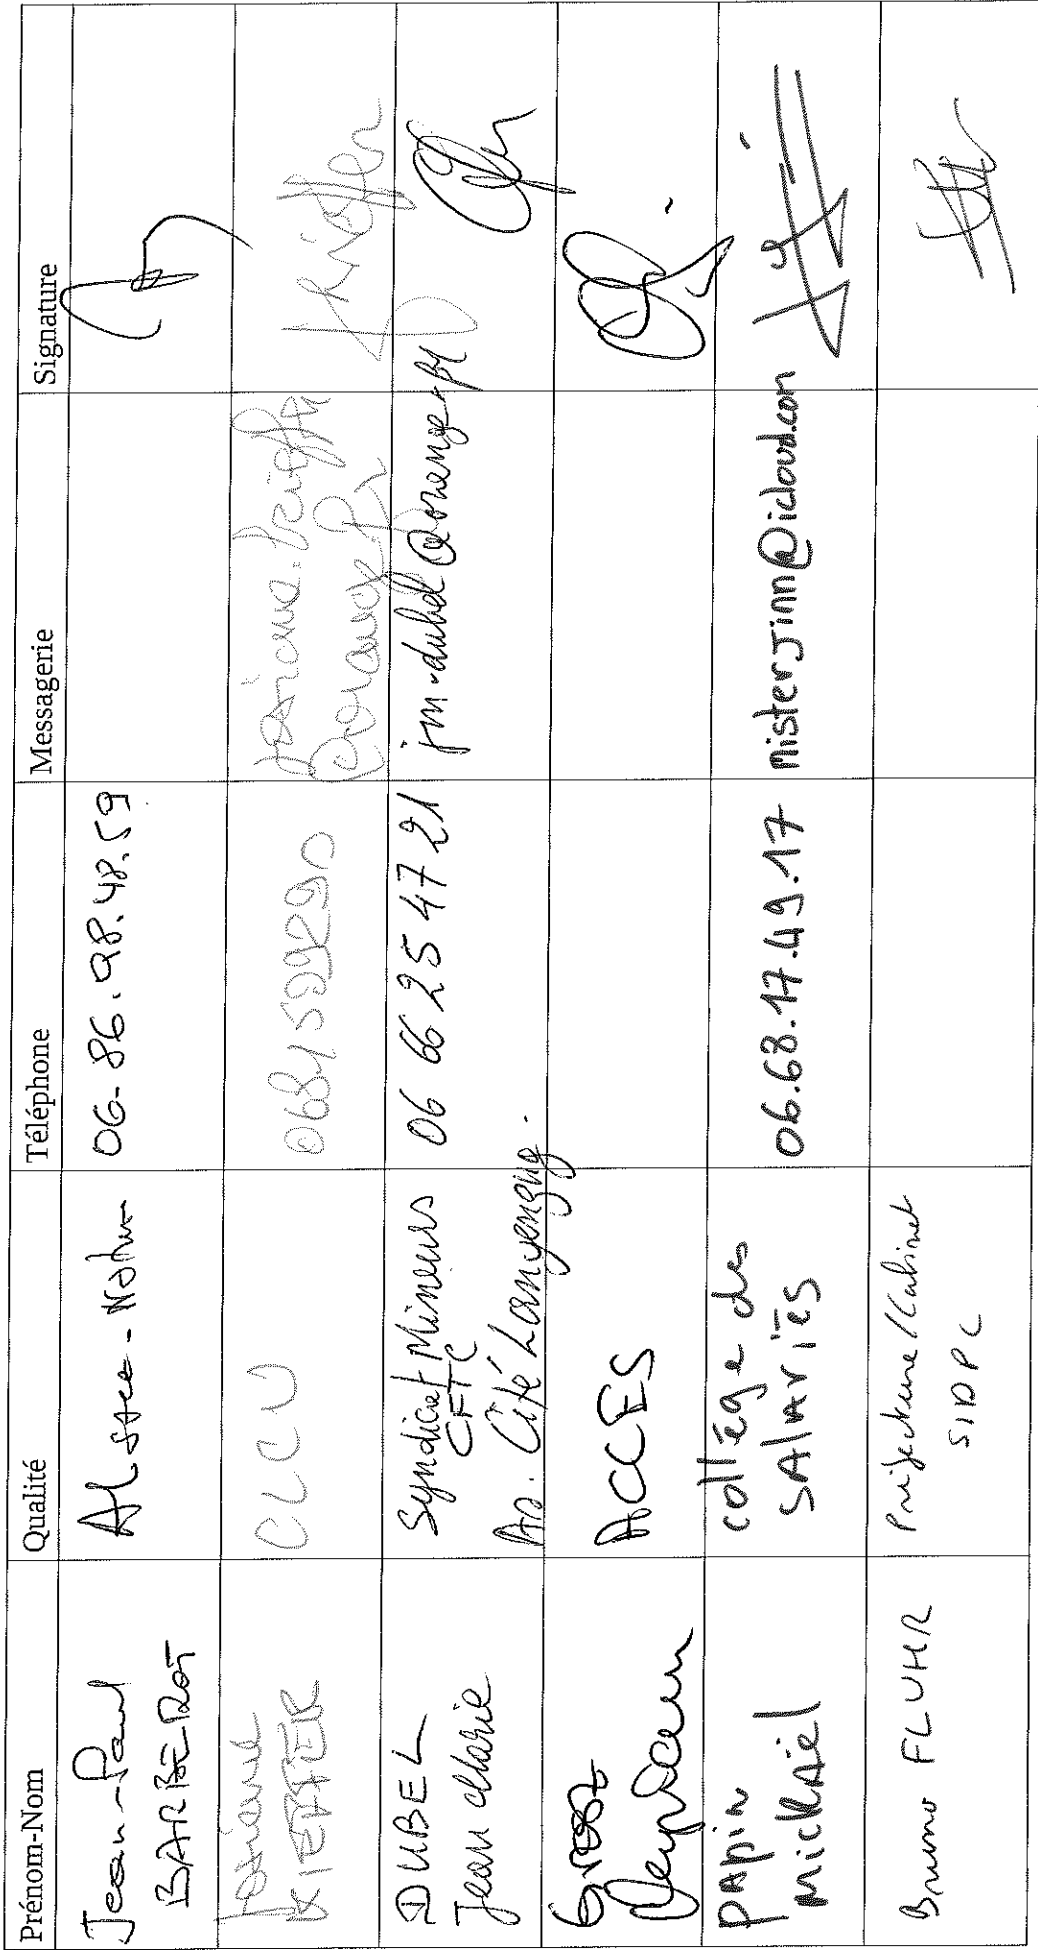 Prénom-Nom Qualité Téléphone Messagerie Signature
Jean-Paul
BARBEROT
Alsace-Nature
06-86.98.48.59
KIEFFER
CLCV
0681592920
DUBEL
Jean Marie
Syndicat Mineurs
CFTC
As. Cité Langenzug.
06 66 25 47 21
jm.dubel@orange.fr
Gross
ACCES
PAPIN
MicKAiel
collège des
SALAriés
06.68.17.49.17
misterjinn@icloud.com
Bruno FLUHR
Préfecture/Cabinet
SIDPC